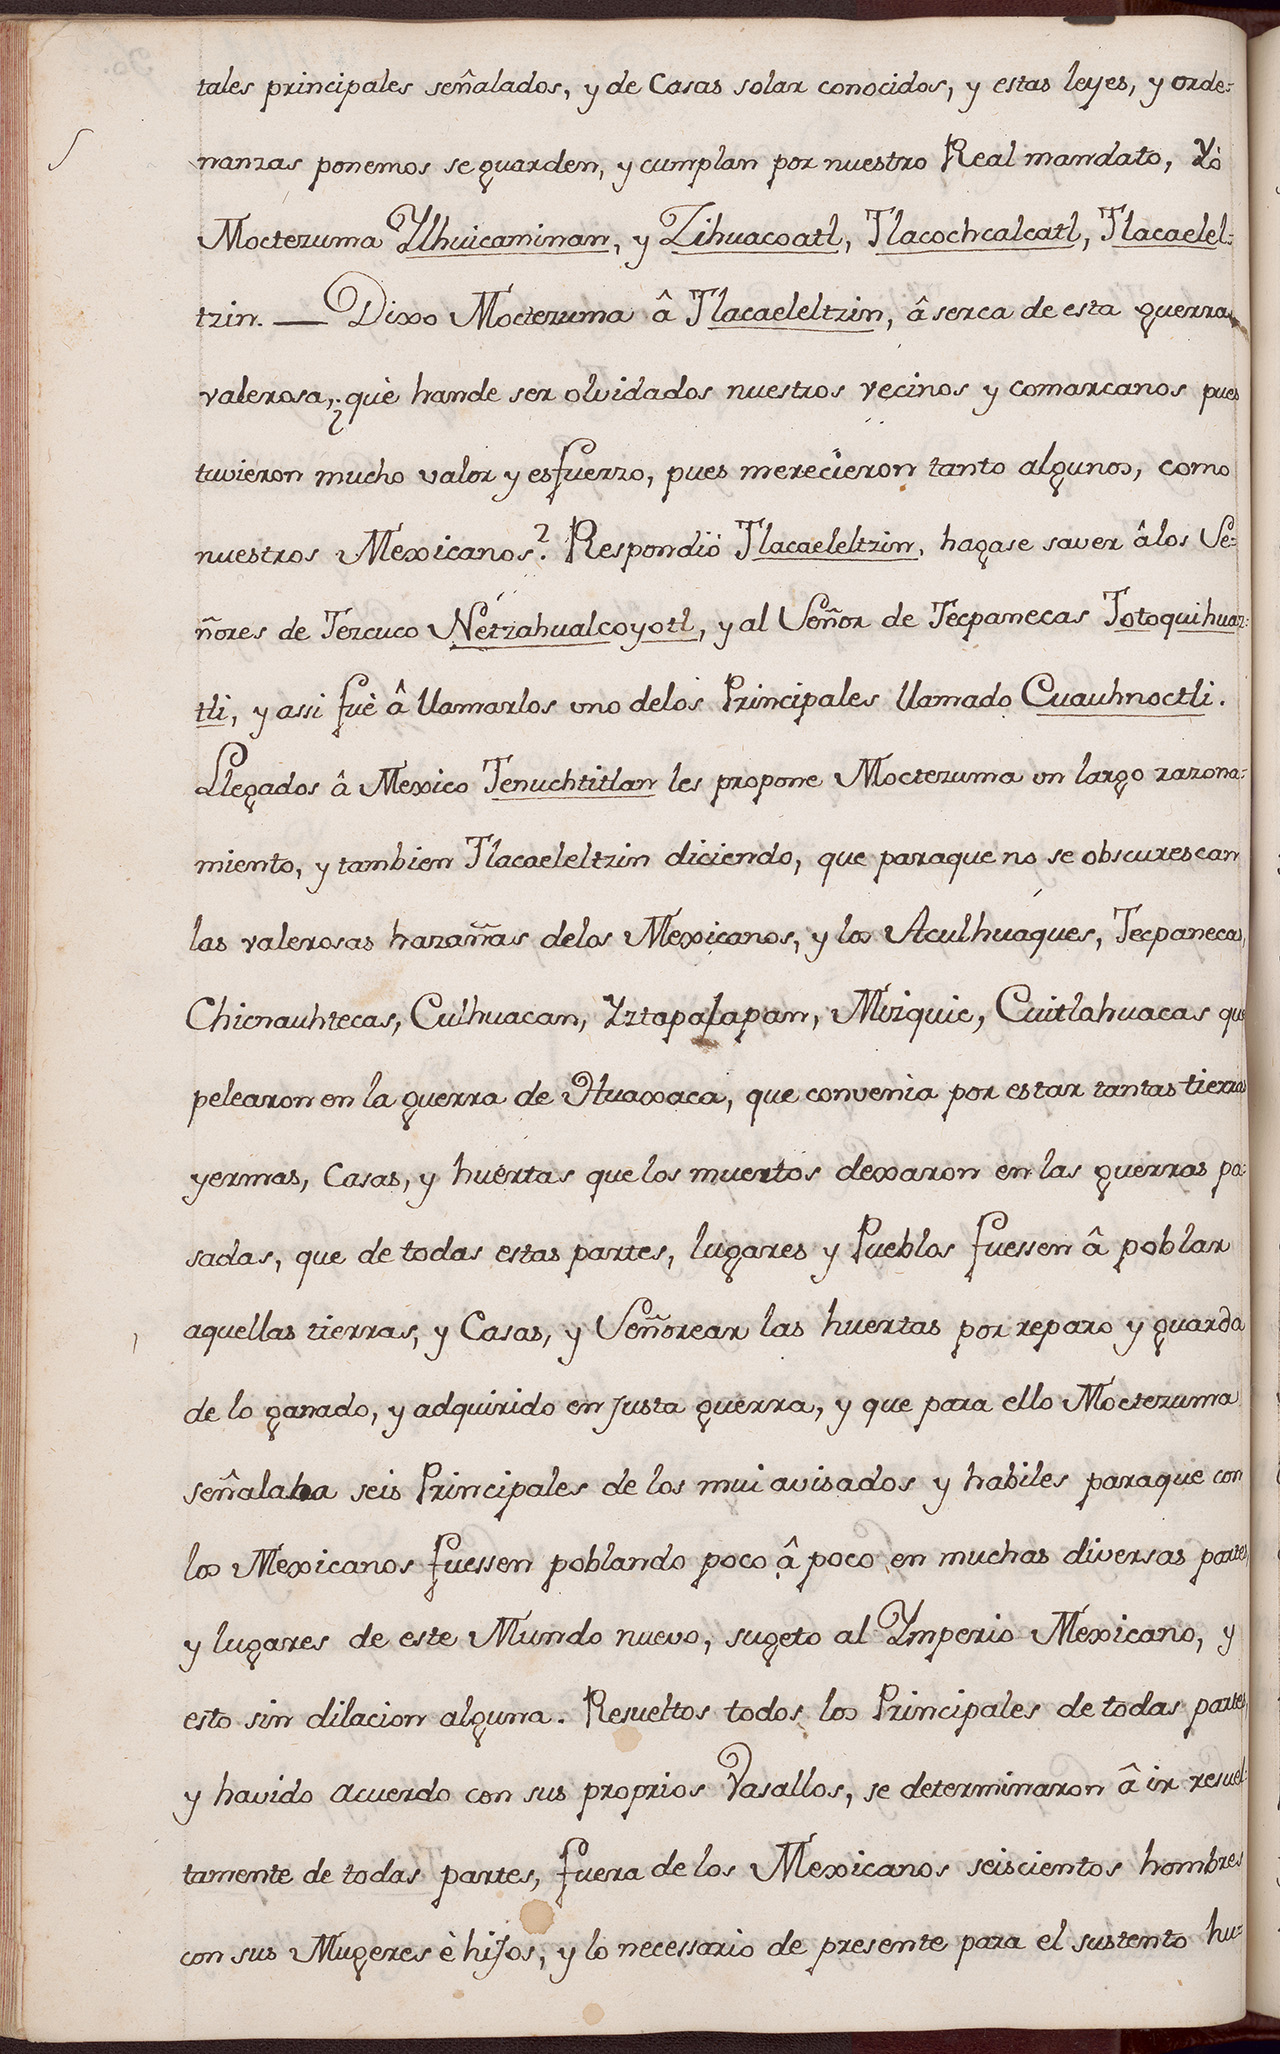 tales principales señalados, y de Casas solar conocidos, y estas leyes, y orde=
nanzas ponemos se guarden, y cumplan por nuestro Real mandato, Yò
Moctezuma Ylhuicaminan, y Zihuacoatl, Tlacochcalcatl, Tlacaelel=
tzin. — Dixo Moctezuma â Tlacaeleltzin, â serca de esta guerra
valerosa, ¿què hande ser olvidados nuestros vecinos y comarcanos pues
tuvieron mucho valor y esfuerzo, pues merecieron tanto algunos, como
nuestros Mexicanos? Respondiò Tlacaeleltzin, hagase saver âlos Se=
ñores de Tezcuco Netzahualcoyotl, y al Señor de Tecpanecas Totoquihuaz=
tli, y assi fuè â llamarlos uno delos Principales llamado Cuauhnoctli.
Llegados â Mexico Tenuchtitlan les propone Moctezuma un largo razona=
miento, y tambien Tlacaeleltzin diciendo, que paraque no se obscurescan
las valerosas hazañas delos Mexicanos, y los Aculhuaques, Tecpanecas,
Chicnauhtecas, Culhuacan, Yztapalapan, Mizquic, Cuitlahuacas que
pelearon en la guerra de Huaxaca, que convenia por estar tantas tierras
yermas, Casas, y huertas que los muertos dexaron en las guerras pa=
sadas, que de todas estas partes, lugares y Pueblos fuessen â poblar
aquellas tierras, y Casas, y Señorear las huertas por reparo y guarda
de lo ganado, y adquirido en justa guerra, y que para ello Moctezuma
señalaba seis Principales de los mui avisados y habiles paraque con
los Mexicanos fuessen poblando poco â poco en muchas diversas partes
y lugares de este Mundo nuevo, sugeto al Ymperio Mexicano, y
esto sin dilacion alguna. Resueltos todos los Principales de todas partes,
y havido acuerdo con sus proprios Vasallos, se determinaron â ir resuel=
tamente de todas partes, fuera de los Mexicanos seiscientos hombres
con sus Mugeres è hijos, y lo necessario de presente para el sustento hu=